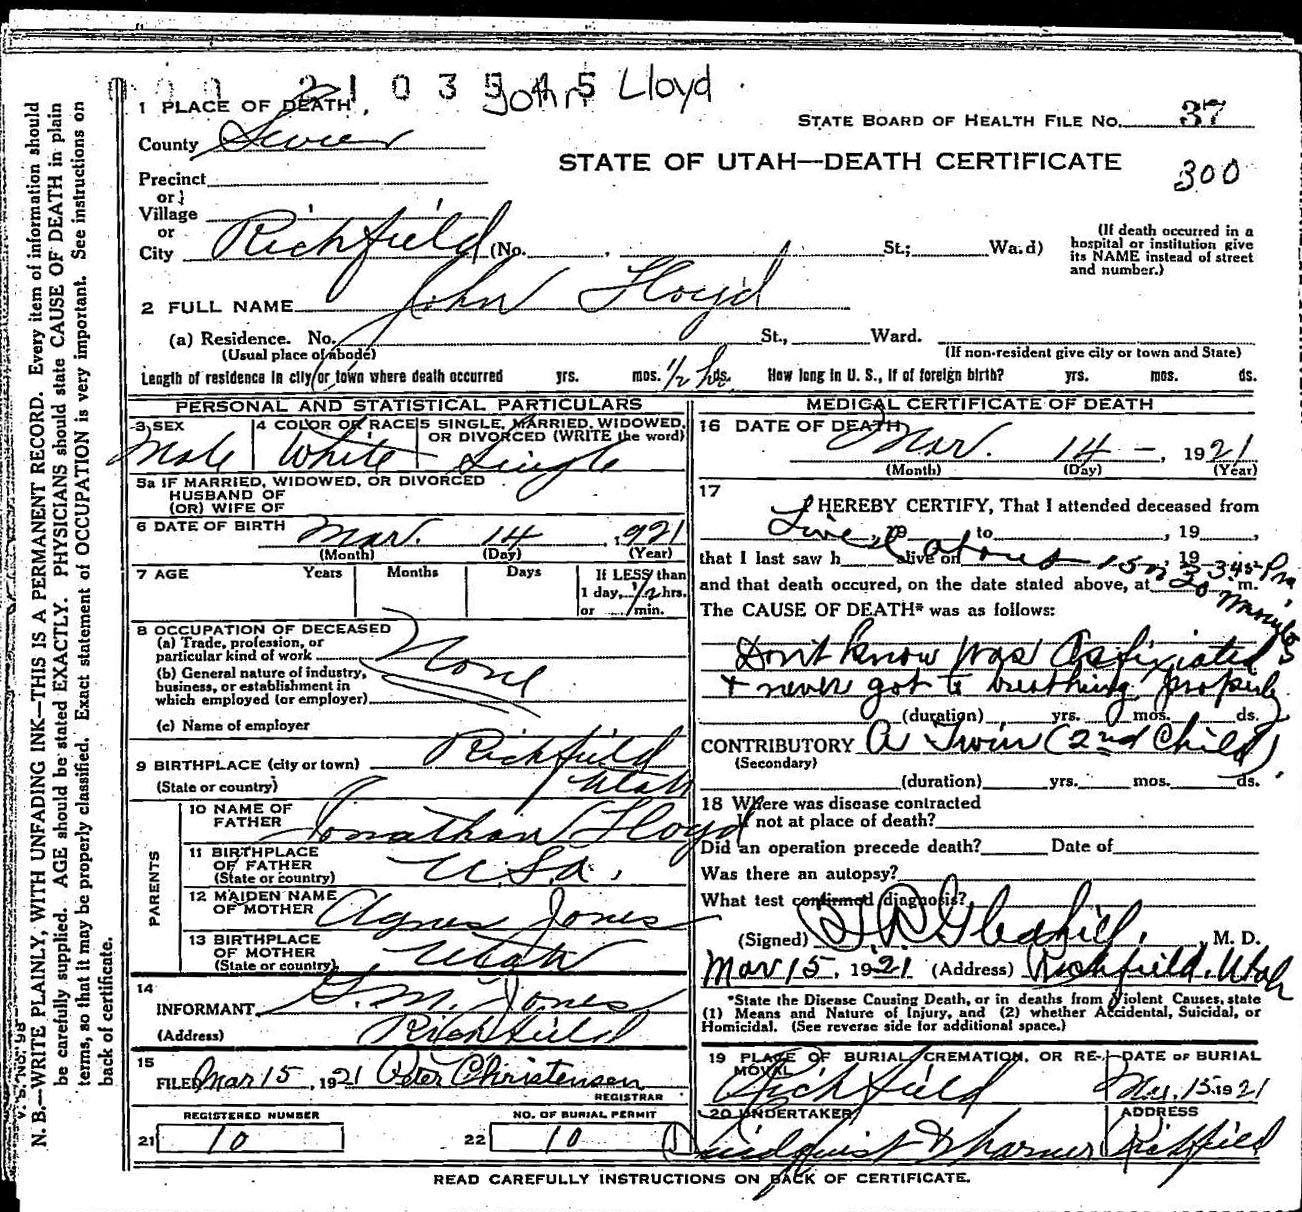 2103545 John Lloyd
1 PLACE OF DEATH,
County Sevier
STATE BOARD OF HEALTH FILE NO. 37
STATE OF UTAH—DEATH CERTIFICATE
300
Precinct
or
Village
or
City Richfield (No. St.; Ward)
(If death occurred in a
hospital or institution give
its NAME instead of street
and number.)
2 FULL NAME John Lloyd
(a) Residence. No. St., Ward.
(Usual place of abode)
(If non-resident give city or town and State)
Length of residence in city or town where death occurred yrs. mos. 1/2 hr. ds. How long in U. S., if of foreign birth? yrs. mos. ds.
PERSONAL AND STATISTICAL PARTICULARS
3 SEX
Male
4 COLOR OR RACE
White
5 SINGLE, MARRIED, WIDOWED,
OR DIVORCED (WRITE the word)
Single
5a IF MARRIED, WIDOWED, OR DIVORCED
HUSBAND OF
(OR) WIFE OF
6 DATE OF BIRTH Mar. 14, 921
(Month) (Day) (Year)
7 AGE Years Months Days
If LESS than
1 day, 1/2 hrs.
or min.
8 OCCUPATION OF DECEASED
(a) Trade, profession, or
particular kind of work
None
(b) General nature of industry,
business, or establishment in
which employed (or employer)
(c) Name of employer
9 BIRTHPLACE (city or town) Richfield
(State or country) Utah
PARENTS
10 NAME OF
FATHER Jonathan Lloyd
11 BIRTHPLACE
OF FATHER
(State or country) U.S.A.
12 MAIDEN NAME
OF MOTHER Agnes Jones
13 BIRTHPLACE
OF MOTHER
(State or country) Utah
14
INFORMANT G. M. Jones
(Address) Richfield
15
FILED Mar 15, 1921 Peter Christensen
REGISTRAR
REGISTERED NUMBER
21 10
NO. OF BURIAL PERMIT
22 10
MEDICAL CERTIFICATE OF DEATH
16 DATE OF DEATH
Mar. 14 -, 1921
(Month) (Day) (Year)
17
I HEREBY CERTIFY, That I attended deceased from
, 19 to , 19 ,
Lived about 15 or 20 minutes
that I last saw h alive on , 19
and that death occured, on the date stated above, at 3 45 m.
The CAUSE OF DEATH* was as follows:
Don't know was Asfixiated
+ never got to breathing properly
(duration) yrs. mos. ds.
CONTRIBUTORY A Twin (2nd Child)
(Secondary)
(duration) yrs. mos. ds.
18 Where was disease contracted
If not at place of death?
Did an operation precede death? Date of
Was there an autopsy?
What test confirmed diagnosis?
(Signed) Gledhill, M. D.
Mar 15, 1921 (Address) Richfield, Utah
*State the Disease Causing Death, or in deaths from Violent Causes, state
(1) Means and Nature of Injury, and (2) whether Accidental, Suicidal, or
Homicidal. (See reverse side for additional space.)
19 PLACE OF BURIAL, CREMATION, OR RE-
MOVAL
Richfield
DATE OF BURIAL
Mar. 15 1921
20 UNDERTAKER
ADDRESS
Richfield
READ CAREFULLY INSTRUCTIONS ON BACK OF CERTIFICATE.
V. S. No. 98
N. B.—WRITE PLAINLY, WITH UNFADING INK—THIS IS A PERMANENT RECORD. Every item of information should
be carefully supplied. AGE should be stated EXACTLY. PHYSICIANS should state CAUSE OF DEATH in plain
terms, so that it may be properly classified. Exact statement of OCCUPATION is very important. See instructions on
back of certificate.